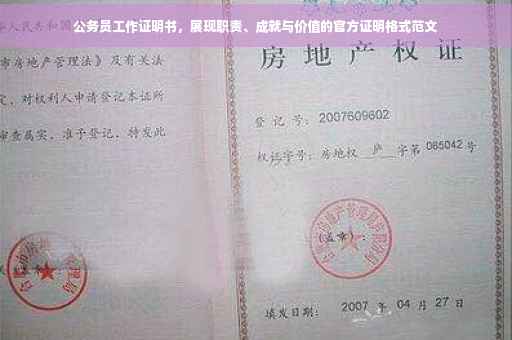 公务员工作证明书，展现职责、成就与价值的官方证明格式范文
人民共和国
市房地产管理法》及有关法
定，对权利人申请登记本证所
审查属实，准予登记，特发此
房地产权证
登记号：2007609602
权证字号：房地权 庐 字第 085042 号
(盖章)：
填发日期： 2007 年 04 月 27 日